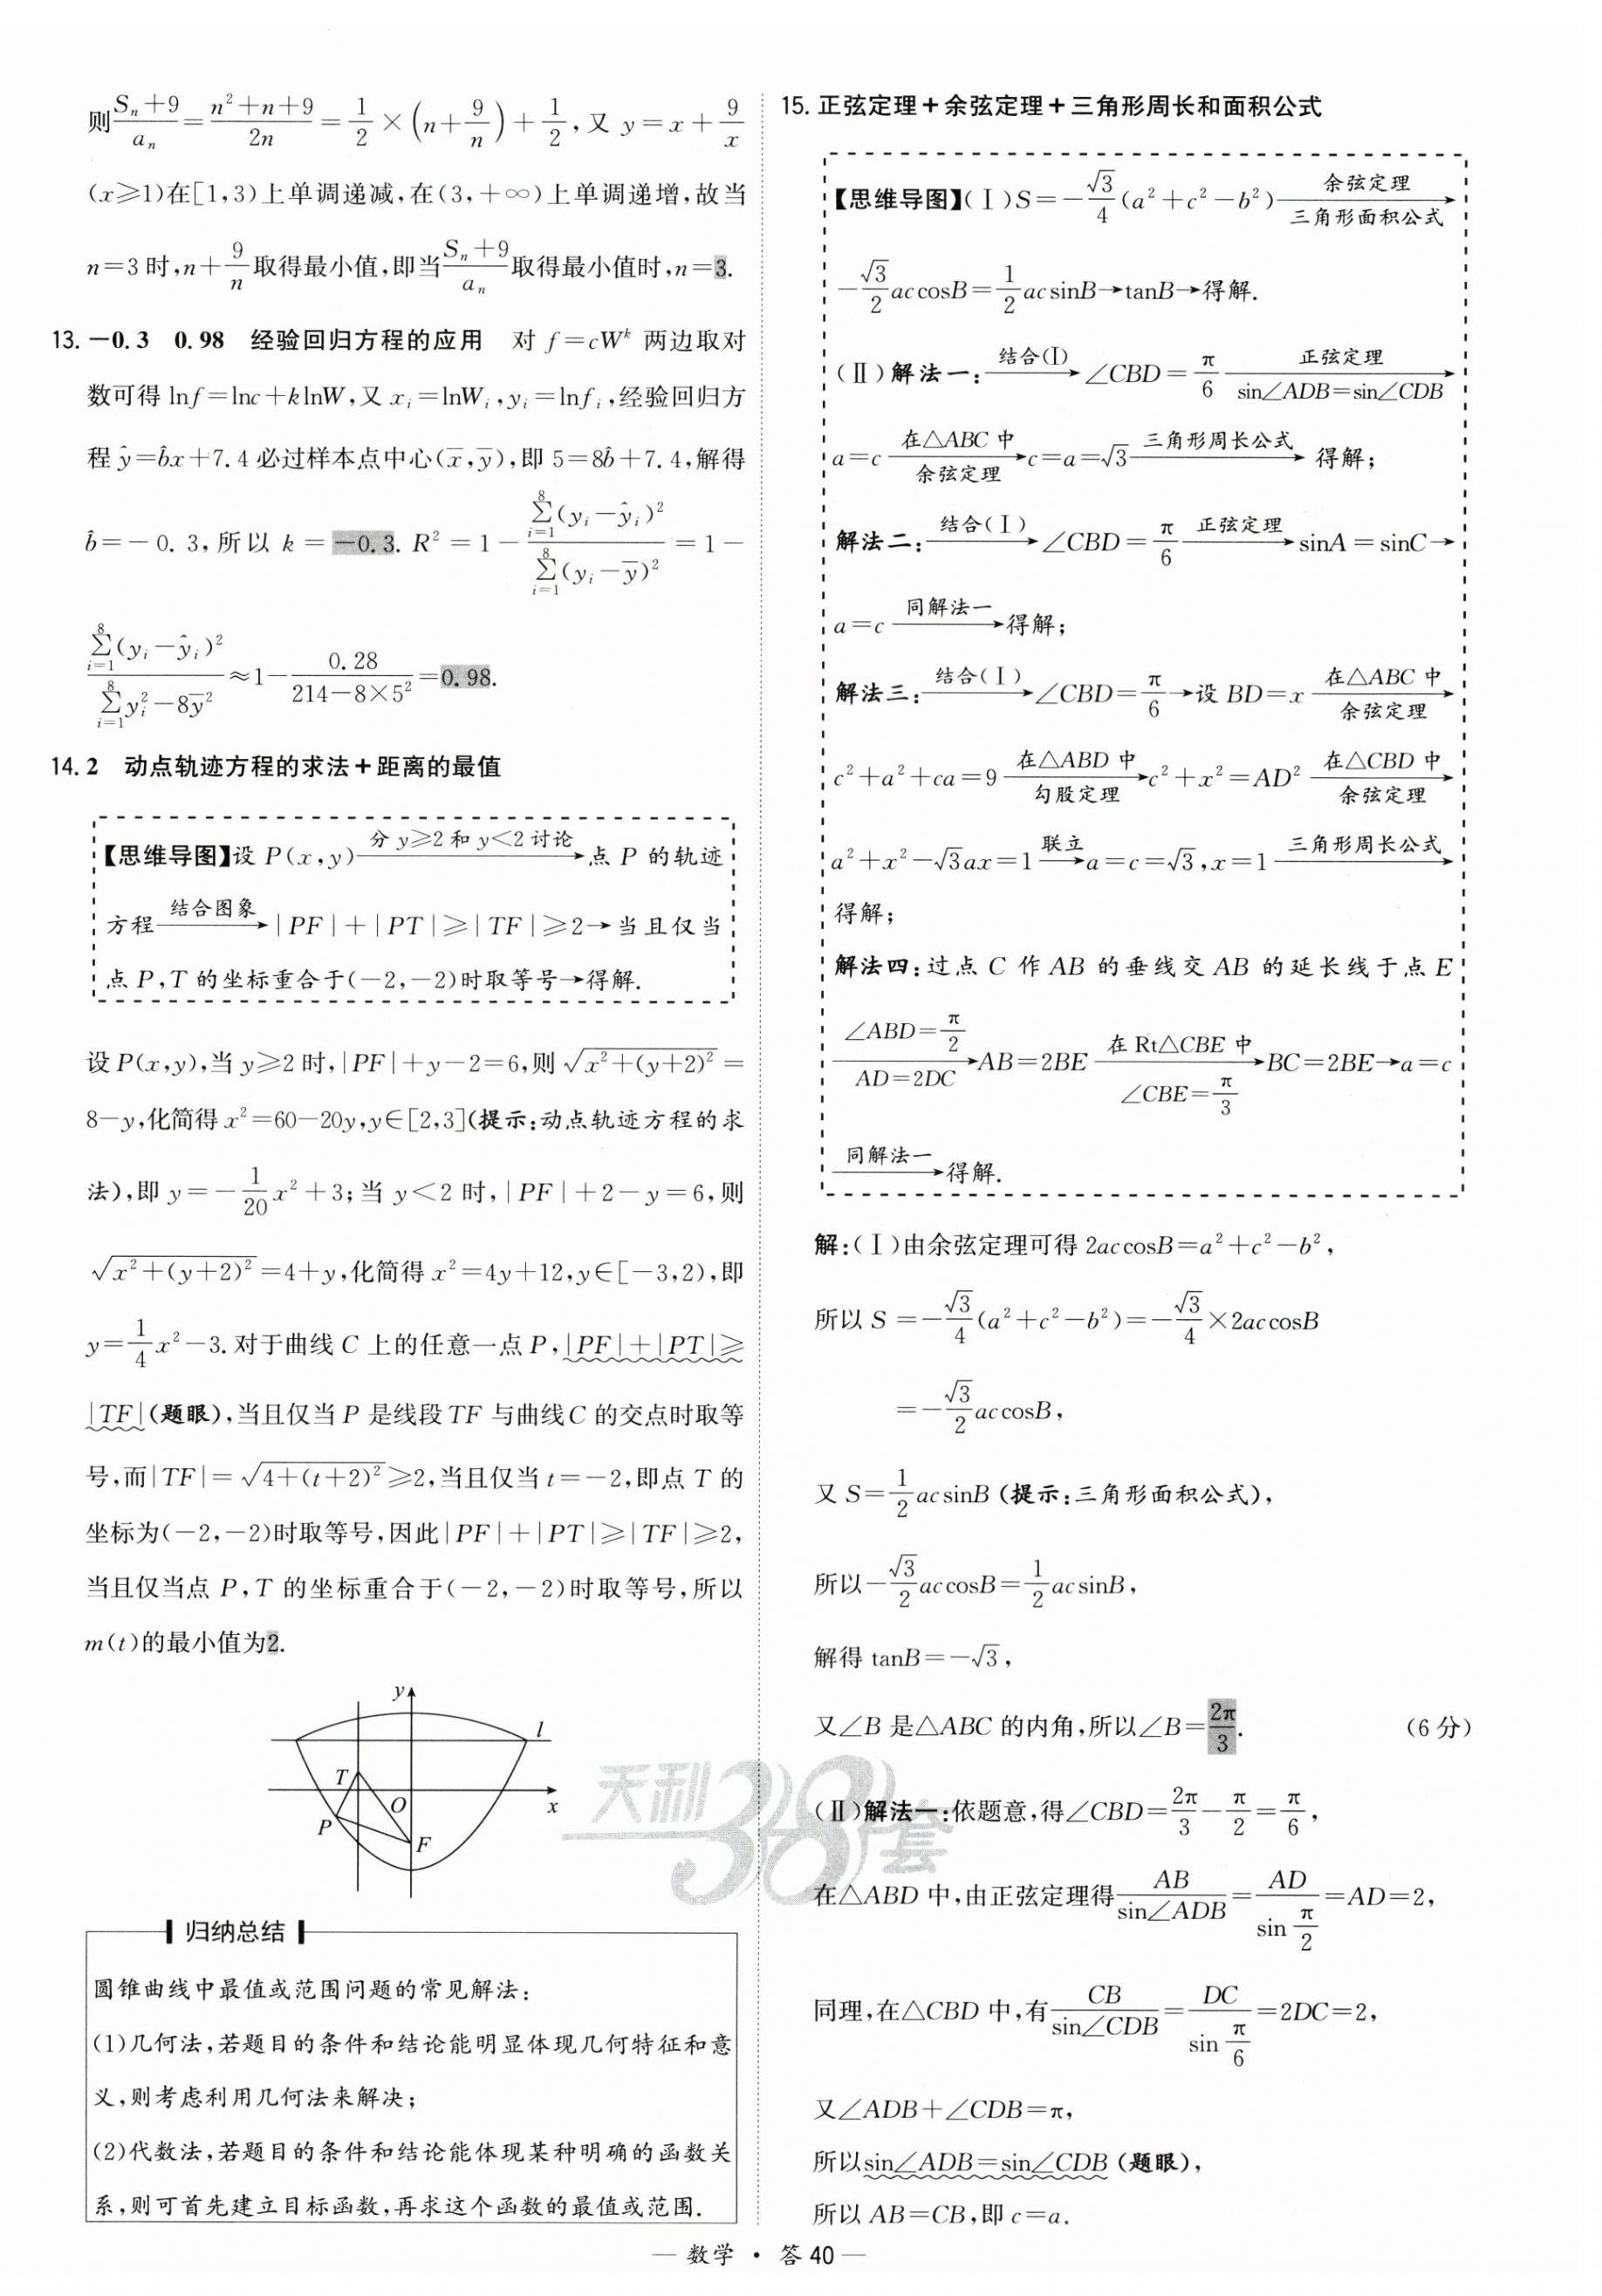 则(Sₙ+9)/aₙ=(n²+n+9)/(2n)=1/2×(n+9/n)+1/2,又 y=x+9/x
(x≥1)在[1,3)上单调递减,在(3,+∞)上单调递增,故当
n=3时,n+9/n取得最小值,即当(Sₙ+9)/aₙ取得最小值时,n=3.
13. -0.3 0.98 经验回归方程的应用 对 f=cWᵏ 两边取对
数可得 lnf=lnc+klnW,又 xᵢ=lnWᵢ,yᵢ=lnfᵢ,经验回归方
程ŷ=b̂x+7.4必过样本点中心(x̄,ȳ),即5=8b̂+7.4,解得
b̂=-0.3,所以 k=-0.3. R²=1-∑ᵢ₌₁⁸(yᵢ-ŷᵢ)²/∑ᵢ₌₁⁸(yᵢ-ȳ)²=1-
∑ᵢ₌₁⁸(yᵢ-ŷᵢ)²/(∑ᵢ₌₁⁸yᵢ²-8ȳ²)≈1-0.28/(214-8×5²)=0.98.
14. 2 动点轨迹方程的求法+距离的最值
【思维导图】设 P(x,y) 分 y≥2 和 y<2 讨论→点 P 的轨迹
方程 结合图象→|PF|+|PT|≥|TF|≥2→当且仅当
点 P,T 的坐标重合于(-2,-2)时取等号→得解.
设P(x,y),当y≥2时,|PF|+y-2=6,则√(x²+(y+2)²)=
8-y,化简得x²=60-20y,y∈[2,3](提示:动点轨迹方程的求
法),即 y=-1/20x²+3;当 y<2 时,|PF|+2-y=6,则
√(x²+(y+2)²)=4+y,化简得 x²=4y+12,y∈[-3,2),即
y=1/4x²-3.对于曲线 C 上的任意一点 P,|PF|+|PT|≥
|TF|(题眼),当且仅当 P 是线段TF 与曲线C 的交点时取等
号,而|TF|=√(4+(t+2)²)≥2,当且仅当 t=-2,即点 T 的
坐标为(-2,-2)时取等号,因此|PF|+|PT|≥|TF|≥2,
当且仅当点 P,T 的坐标重合于(-2,-2)时取等号,所以
m(t)的最小值为2.
y
l
T
O
x
P
F
归纳总结
圆锥曲线中最值或范围问题的常见解法:
(1)几何法,若题目的条件和结论能明显体现几何特征和意
义,则考虑利用几何法来解决;
(2)代数法,若题目的条件和结论能体现某种明确的函数关
系,则可首先建立目标函数,再求这个函数的最值或范围.
15. 正弦定理+余弦定理+三角形周长和面积公式
【思维导图】(Ⅰ)S=-√3/4(a²+c²-b²) 余弦定理 三角形面积公式→
-√3/2accosB=1/2acsinB→tanB→得解.
(Ⅱ)解法一: 结合(Ⅰ)→∠CBD=π/6 正弦定理 sin∠ADB=sin∠CDB→
a=c 在△ABC 中 余弦定理→c=a=√3 三角形周长公式→得解;
解法二: 结合(Ⅰ)→∠CBD=π/6 正弦定理→sinA=sinC→
a=c 同解法一→得解;
解法三: 结合(Ⅰ)→∠CBD=π/6→设 BD=x 在△ABC 中 余弦定理→
c²+a²+ca=9 在△ABD 中 勾股定理→c²+x²=AD² 在△CBD 中 余弦定理→
a²+x²-√3ax=1 联立→a=c=√3,x=1 三角形周长公式→
得解;
解法四:过点 C 作 AB 的垂线交 AB 的延长线于点 E
∠ABD=π/2 AD=2DC→AB=2BE 在 Rt△CBE 中 ∠CBE=π/3→BC=2BE→a=c
同解法一→得解.
解:(Ⅰ)由余弦定理可得 2accosB=a²+c²-b²,
所以 S=-√3/4(a²+c²-b²)=-√3/4×2accosB
=-√3/2accosB,
又 S=1/2acsinB(提示:三角形面积公式),
所以-√3/2accosB=1/2acsinB,
解得 tanB=-√3,
又∠B 是△ABC 的内角,所以∠B=2π/3. (6 分)
(Ⅱ)解法一:依题意,得∠CBD=2π/3-π/2=π/6,
在△ABD 中,由正弦定理得AB/sin∠ADB=AD/sin(π/2)=AD=2,
同理,在△CBD 中,有CB/sin∠CDB=DC/sin(π/6)=2DC=2,
又∠ADB+∠CDB=π,
所以sin∠ADB=sin∠CDB(题眼),
所以 AB=CB,即 c=a.
天利38套
— 数学 · 答 40 —